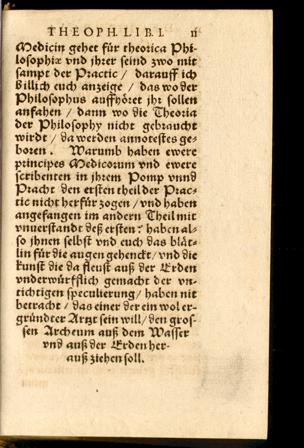 THEOPH. LIB. I. 11
Medicin gehet für theorica Phi-
losophiæ vnd jhrer seind zwo mit
sampt der Practic / darauff ich
billich euch anzeige / das wo der
Philosophus auffhöret jhr sollen
anfahen / dann wo die Theoria
der Philosophy nicht gebraucht
wirdt / da werden annotestes ge-
boren. Warumb haben ewere
principes Medicorum vnd ewere
scribenten in jhrem Pomp vnnd
Pracht den ersten theil der Prac-
tic nicht herfür zogen / vnd haben
angefangen im andern Theil mit
vnuerstandt deß ersten? haben al-
so jhnen selbst vnd euch das blåt-
lin für die augen gehenckt / vnd die
kunst die da fleust auß der Erden
vnderwürfflich gemacht der vn-
tichtigen speculierung / haben nit
betracht / das einer der ein wol er-
gründter Artzt sein will / den gros-
sen Archeum auß dem Wasser
vnd auß der Erden her-
auß ziehen soll.